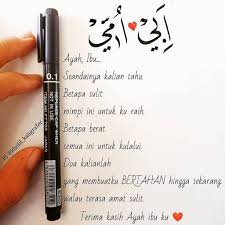 اَبِيْ ❤ اُمِّيْ
Ayah, Ibu...
Seandainya kalian tahu
Betapa sulit
mimpi ini untuk ku raih
Betapa berat
semua ini untuk kulalui
Doa kalianlah
yang membuatku BERTAHAN hingga sekarang
walau terasa amat sulit.
Terima kasih Ayah ibu ku ❤
0.1
NOT IN USE
JAPAN